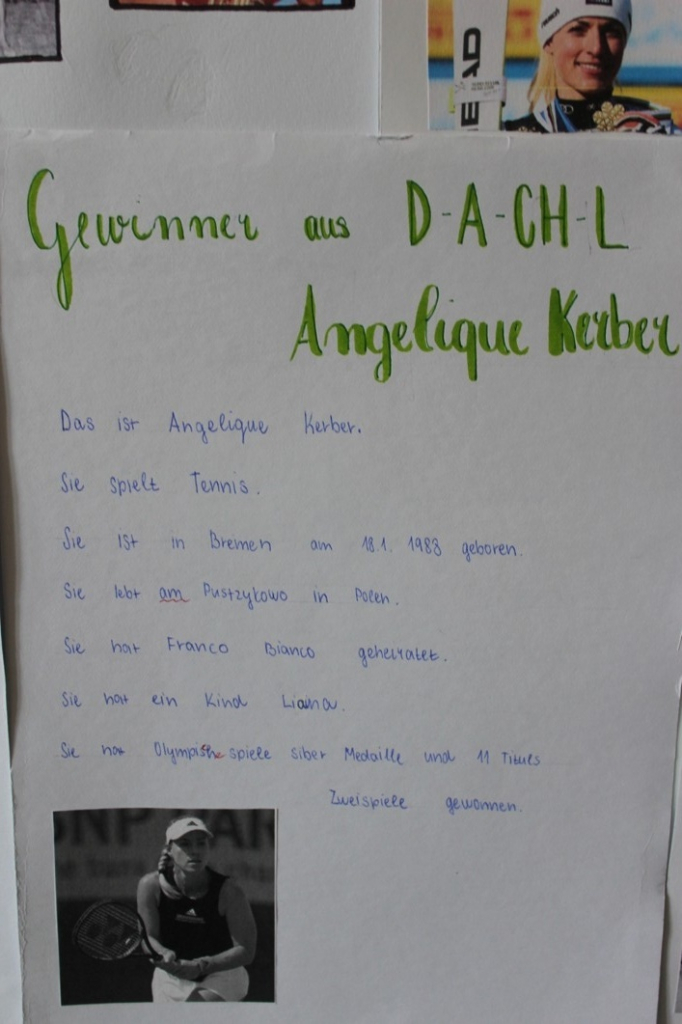 EAD
Gewinner aus D-A-CH-L
Angelique Kerber
Das ist Angelique Kerber.
Sie spielt Tennis.
Sie ist in Bremen am 18.1. 1988 geboren.
Sie lebt am Pustzykowo in Polen.
Sie hat Franco Bianco geheiratet.
Sie hat ein Kind Liana.
Sie hat Olympische spiele silber Medaille und 11 Titels
Zweispiele gewonnen.
BNP PAR